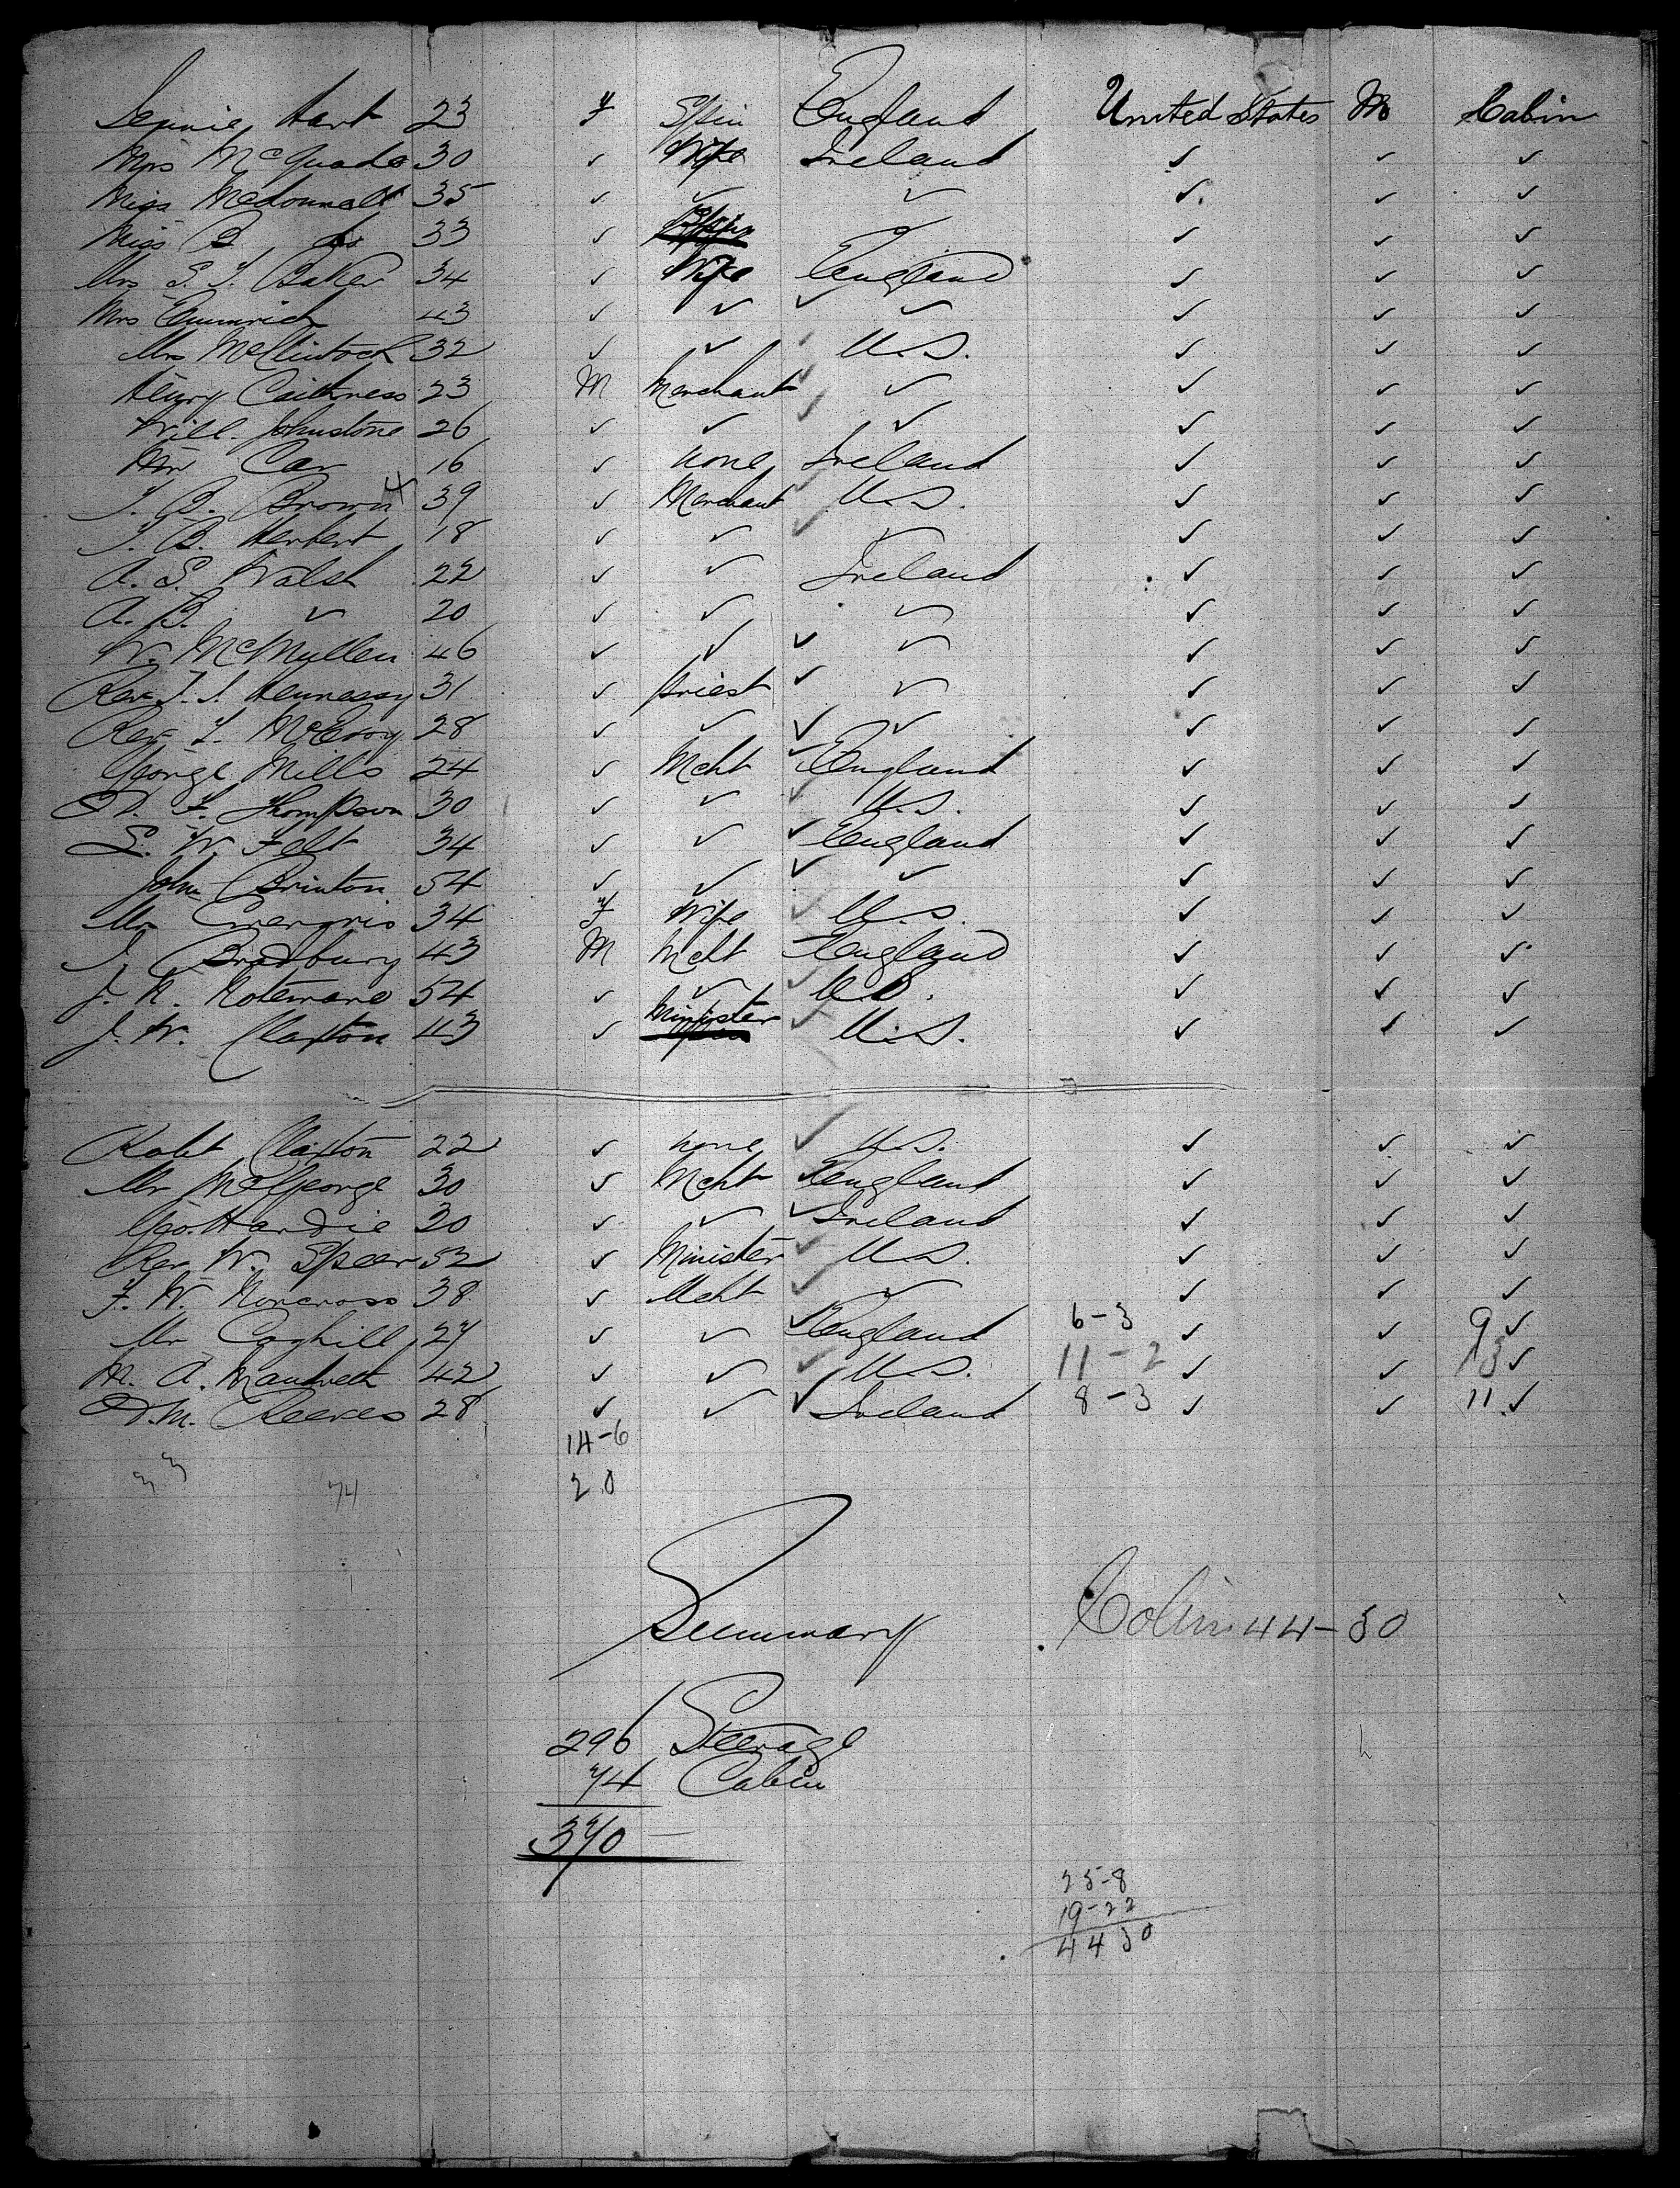 Jennie Hart 23 F Spin England United States M Cabin
Mrs McQuade 30 ✓ Wife Ireland ✓ ✓ ✓
Miss McDonnall 35 ✓ ✓ ✓ ✓ ✓ ✓
Miss B do 33 ✓ Spin ✓ ✓ ✓ ✓
Mrs S. T. Baker 34 ✓ Wife England ✓ ✓ ✓
Mrs Emmrich 43 ✓ ✓ ✓ ✓ ✓ ✓
Mrs McClintock 32 ✓ ✓ U.S. ✓ ✓ ✓
Henry Caithness 23 M Merchant ✓ ✓ ✓ ✓
Will. Johnstone 26 ✓ ✓ ✓ ✓ ✓ ✓
Car 16 ✓ none Ireland ✓ ✓ ✓
T. B. Brown 39 ✓ Merchant U.S. ✓ ✓ ✓
T. B. Herbert 18 ✓ ✓ ✓ ✓ ✓ ✓
A. S. Walsh 22 ✓ ✓ Ireland ✓ ✓ ✓
A. B. ✓ 20 ✓ ✓ ✓ ✓ ✓ ✓
W. McMullen 46 ✓ ✓ ✓ ✓ ✓ ✓
Rev T. J. Hennessy 31 ✓ Priest ✓ ✓ ✓ ✓
Rev T. McEvoy 28 ✓ ✓ ✓ ✓ ✓ ✓
George Mills 24 ✓ Mcht England ✓ ✓ ✓
D. F. Thompson 30 ✓ ✓ U.S. ✓ ✓ ✓
S. W. Felt 34 ✓ ✓ England ✓ ✓ ✓
John Brinton 54 ✓ ✓ ✓ ✓ ✓ ✓
34 F Wife U.S. ✓ ✓ ✓
J. Bradbury 43 M Mcht England ✓ ✓ ✓
J. R. 54 ✓ ✓ U.S. ✓ ✓ ✓
J. W. Claxton 43 ✓ Minister U.S. ✓ ✓ ✓
Robt Claxton 22 ✓ none U.S. ✓ ✓ ✓
Mr McGeorge 30 ✓ Mcht England ✓ ✓ ✓
Geo. Hardie 30 ✓ ✓ Ireland ✓ ✓ ✓
Rev W. Speer 52 ✓ Minister U.S. ✓ ✓ ✓
F. W. Norcross 38 ✓ Mcht ✓ ✓ ✓ ✓
Mr Coghill 27 ✓ ✓ England 6-3 ✓ ✓ 9 ✓
M. A. 42 ✓ ✓ U.S. 11-2 ✓ ✓ 13 ✓
D. M. Reeves 28 ✓ ✓ Ireland 8-3 ✓ ✓ 11 ✓
14-6
33 74 20
Summary
Cabin 44-30
296 Steerage
74 Cabin
370
25-8
19-22
44 30